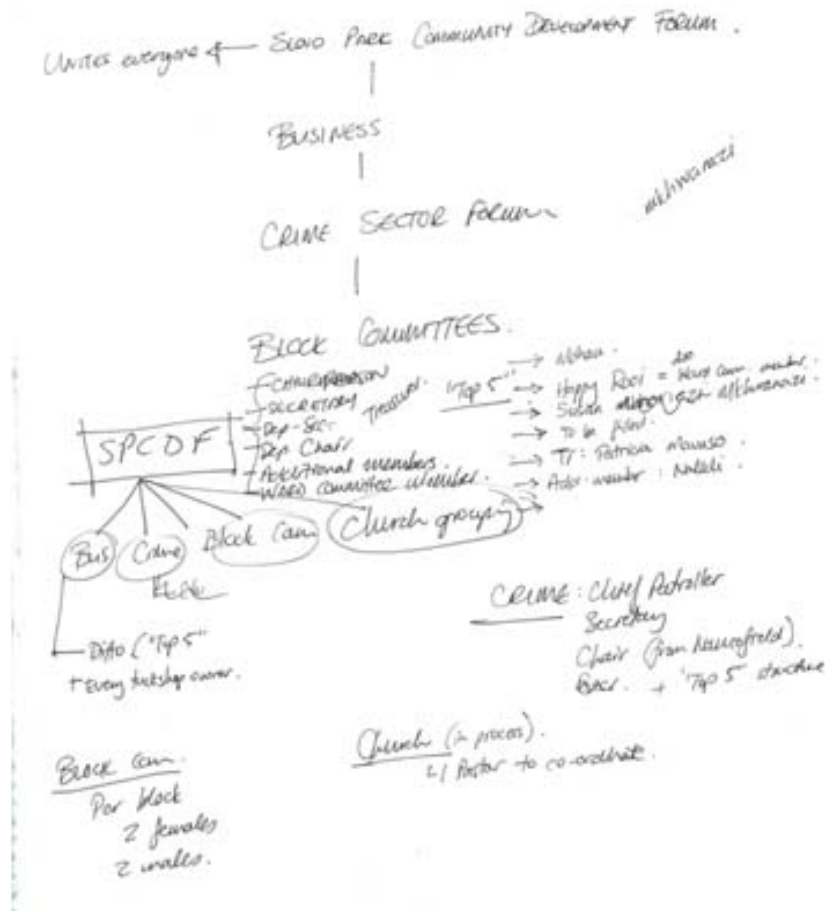 Unites everyone ← Slovo Park Community Development Forum.
Business
Crime Sector Forum
Mkhwanazi
Block Committees.
Chairperson
Secretary
Treasurer.
"Top 5"
Dep-Sec
Dep Chair
Additional members.
Ward Committee member.
→ Mohau.
→ Happy Rooi = Ward Comm. member.
→ Susan Mkhwanazi
→ To be filled.
→ Tr: Patricia
→ Addit. member:
SPCDF
Bus
Crime
Block Com
Church grouping
Ditto ("Top 5"
+ Every tuckshop owner.
Crime: Chief Patroller
Secretary
Chair (from
+ "Top 5" structure
Church (in process).
Pastor to co-ordinate.
Block Com.
Per block
2 females
2 males.